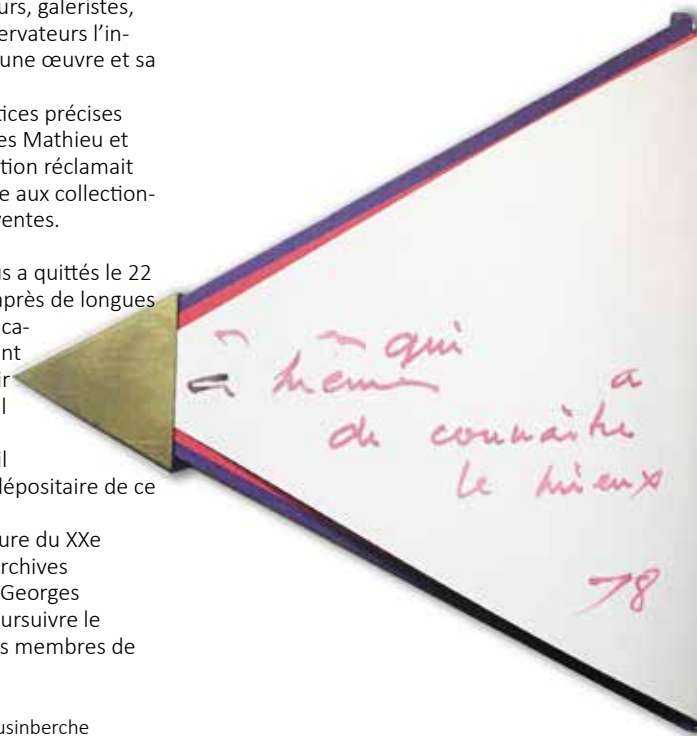 urs, galeristes,
ervateurs l'in-
une œuvre et sa
tices précises
es Mathieu et
tion réclamait
e aux collection-
ventes.
us a quittés le 22
après de longues
ca-
nt
ir
l
il
dépositaire de ce
ure du XXe
rchives
Georges
ursuivre le
s membres de
usinberche
qui
à a
de connaître
le mieux
78